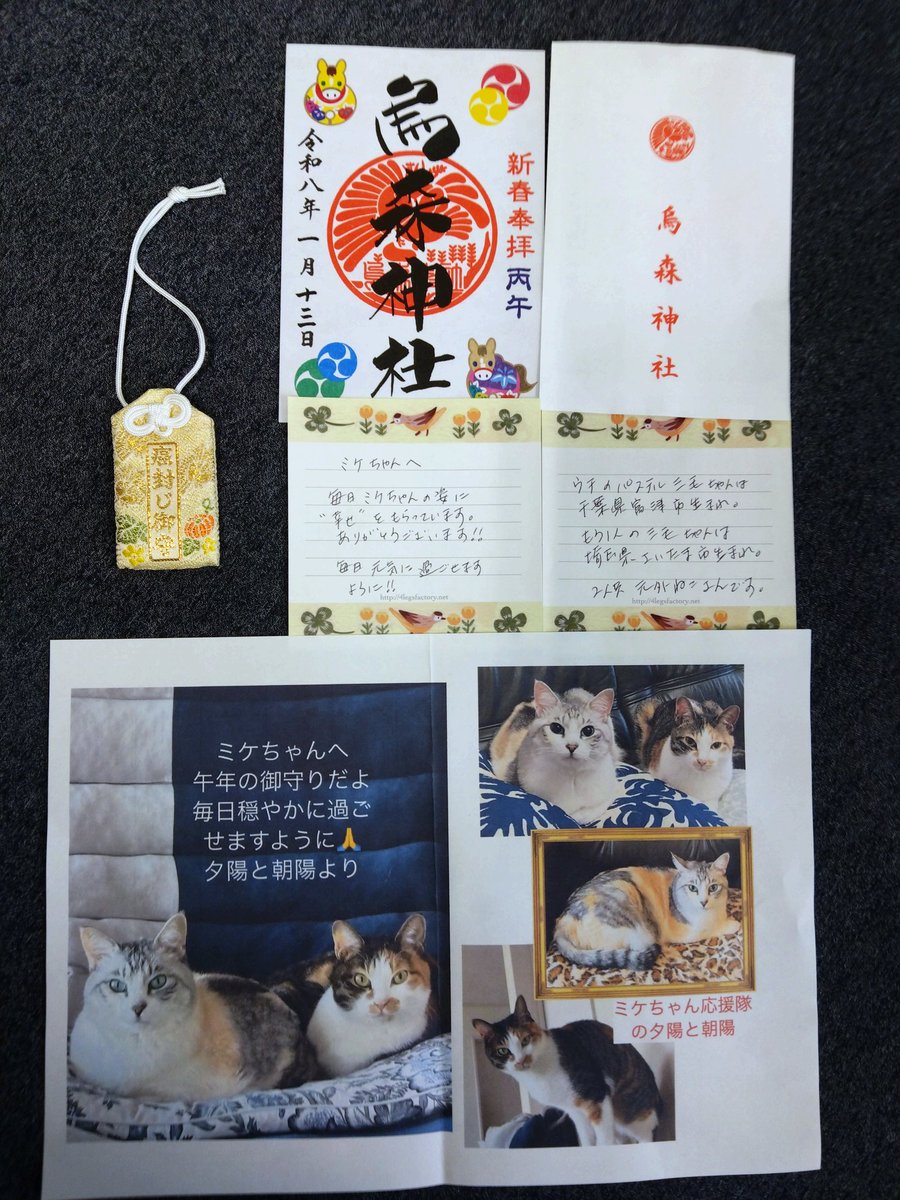 新春奉拝 丙午
烏森神社
令和八年 一月 十三日
烏森神社
癌封じ御守
ミケちゃんへ
毎日ミケちゃんの姿に
"幸せ"をもらっています。
ありがとうございます!!
毎日元気に過ごせます
ように!!
http://4legsfactory.net
ウチのパステル三毛ちゃんは
千葉県富津市生まれ。
もう1人の三毛ちゃんは
埼玉県さいたま市生まれ。
2人共 元外ねこさんです。
http://4legsfactory.net
ミケちゃんへ
午年の御守りだよ
毎日穏やかに過ご
せますように🙏
夕陽と朝陽より
ミケちゃん応援隊
の夕陽と朝陽